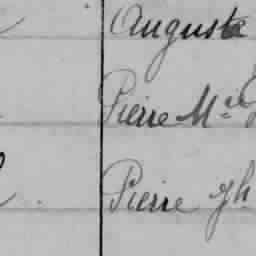 Auguste
Pierre M.ie
Pierre Jh